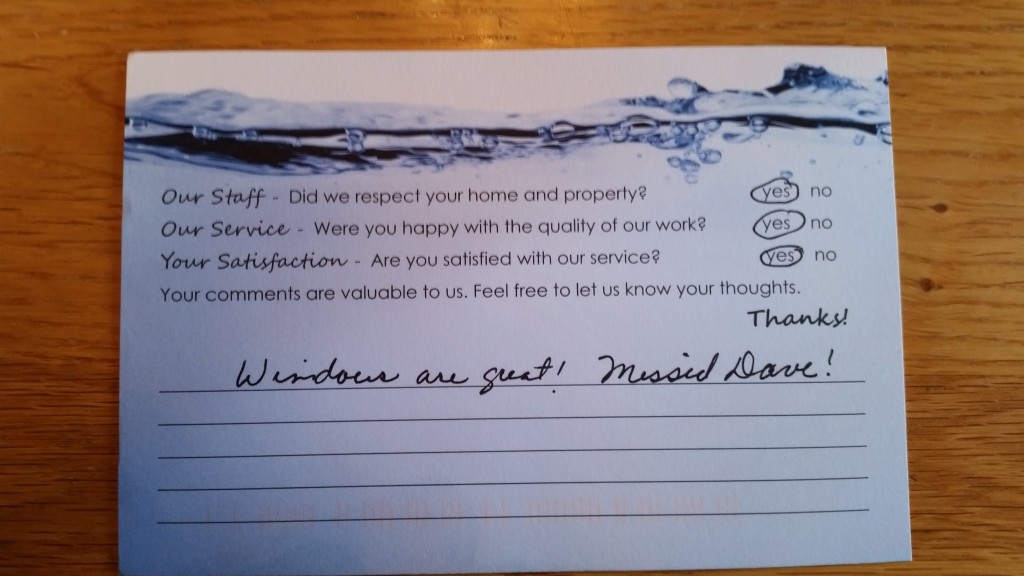 Our Staff - Did we respect your home and property? yes no
Our Service - Were you happy with the quality of our work? yes no
Your Satisfaction - Are you satisfied with our service? yes no
Your comments are valuable to us. Feel free to let us know your thoughts.
Thanks!
Windows are great! Missed Dave!